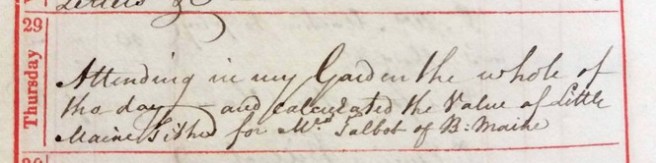 Letters &
29
Thursday
Attending in my Garden the whole of
the day — and calculated the Value of Little
Maine Tithe for Mrs Talbot of B: Maine